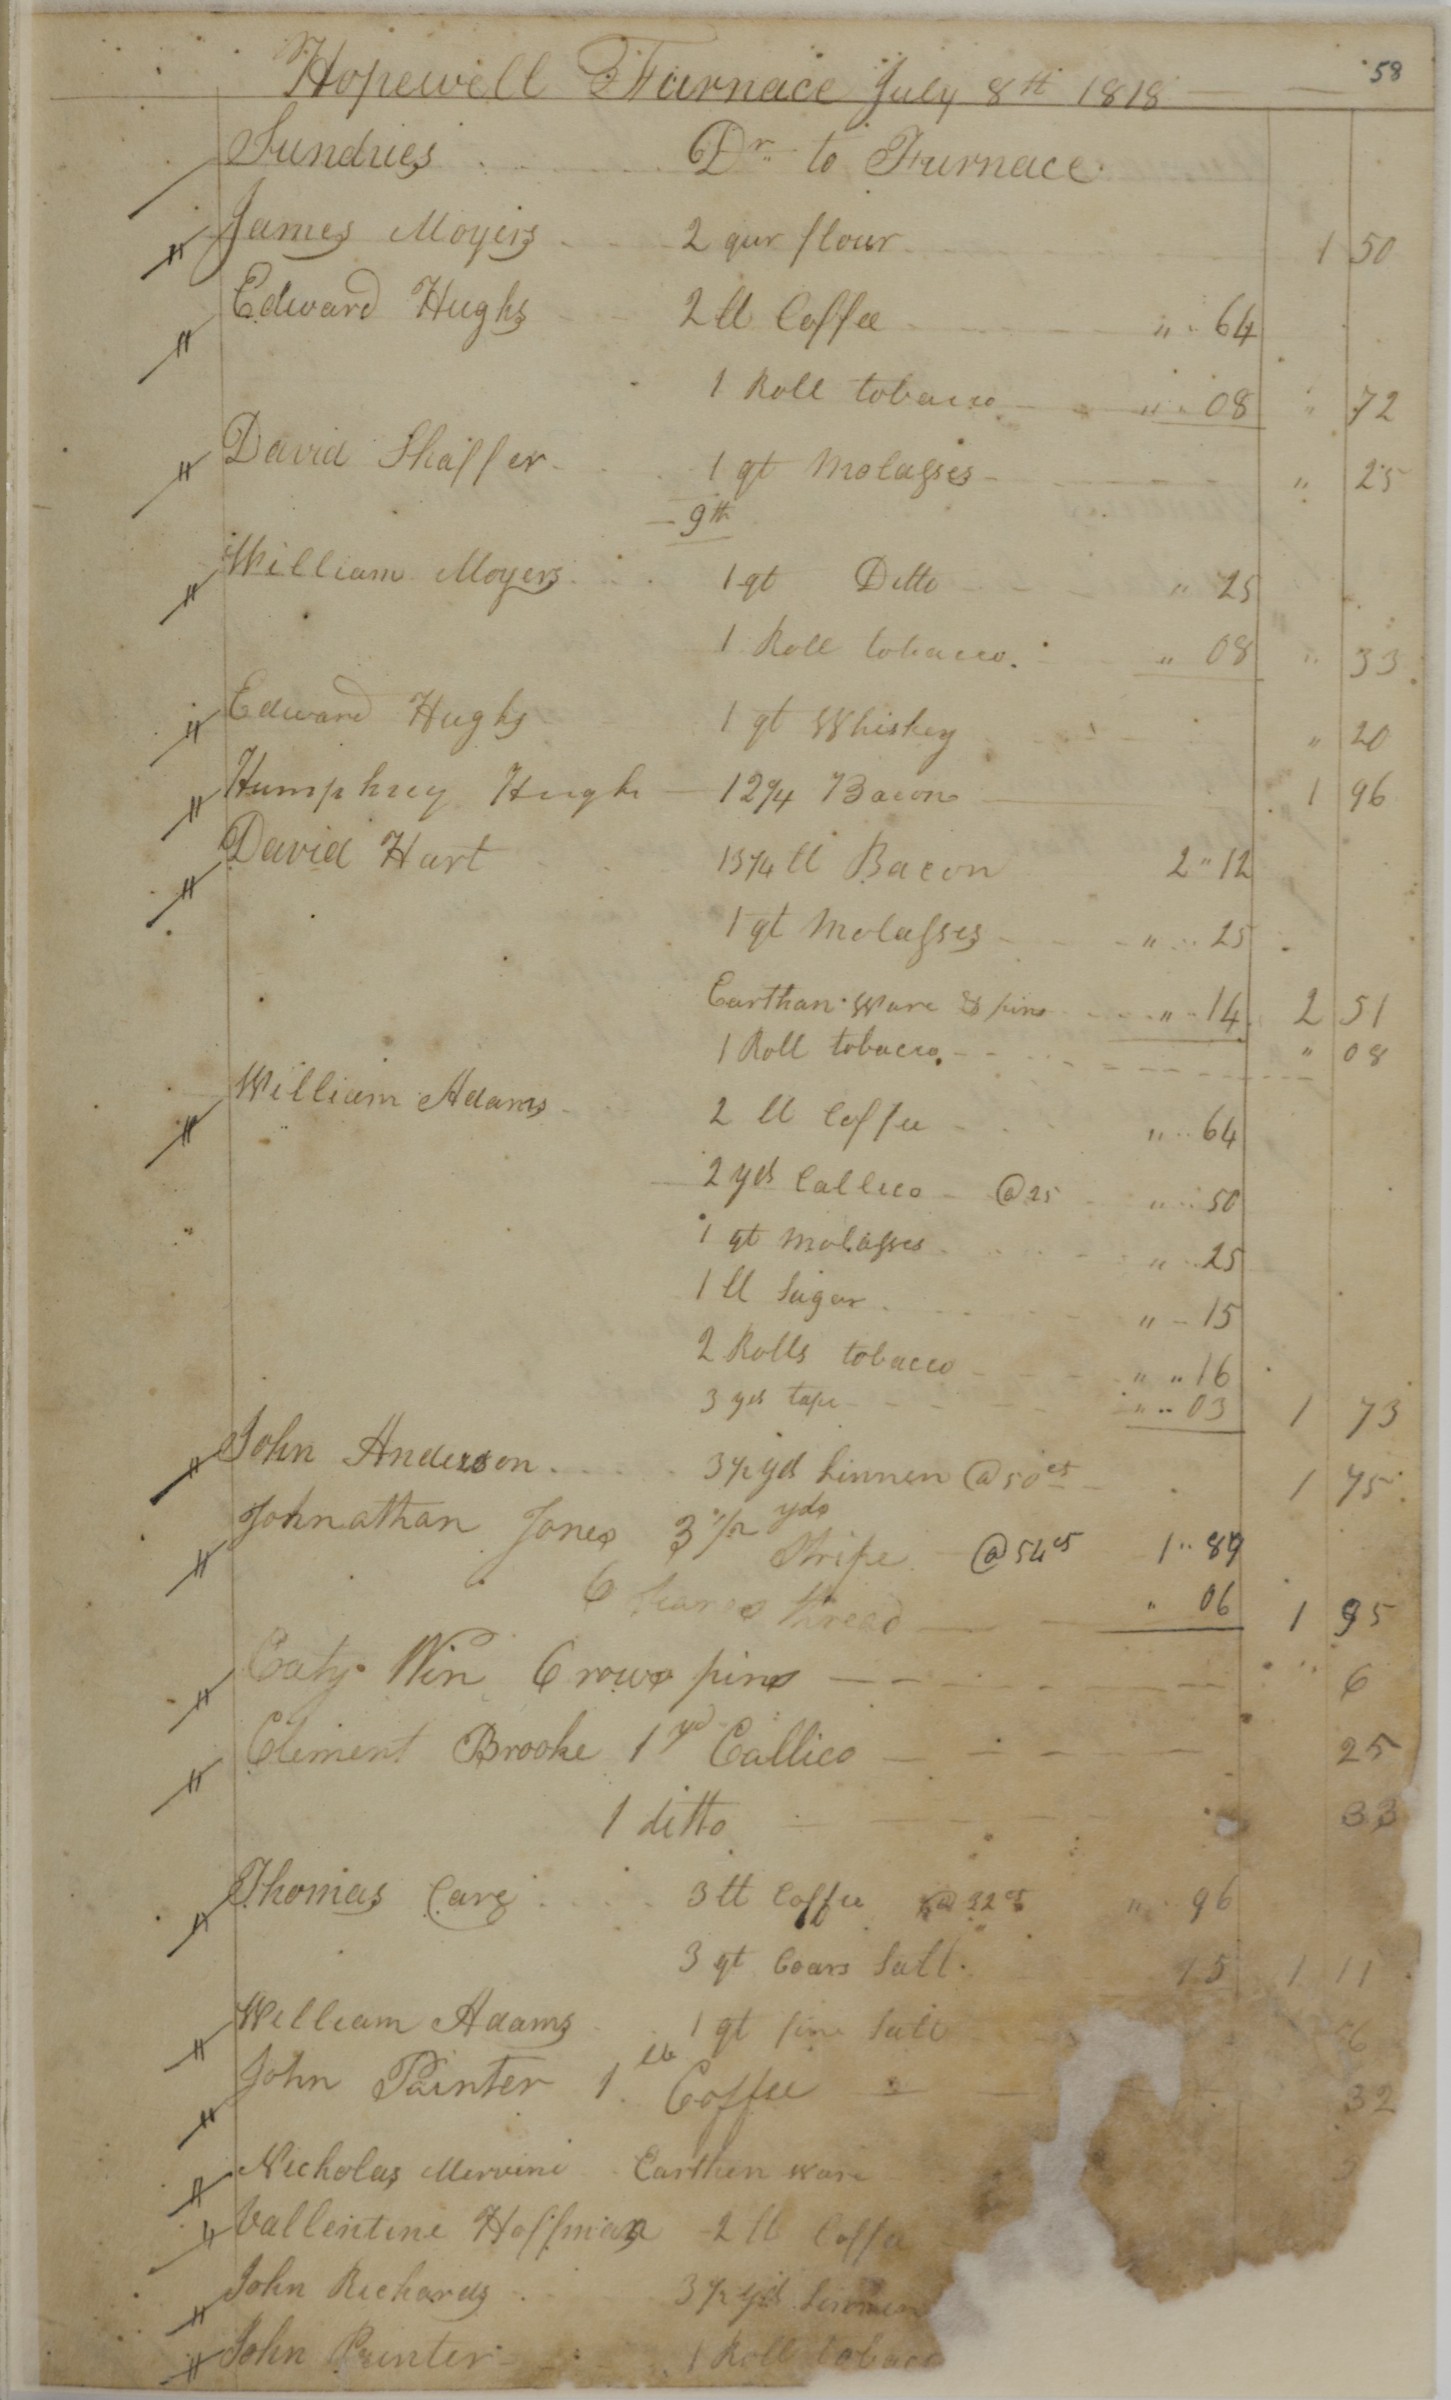 58
Hopewell Furnace July 8th 1818
Sundries Dr to Furnace
James Moyers 2 qur flour 1 50
Edward Hughs 2 ll Coffee " 64
1 Roll tobacco " 08 " 72
David Shaffer 1 qt Molasses " 25
9th
William Moyers 1 qt Ditto " 25
1 Roll tobacco " 08 " 33
Edward Hughs 1 qt Whiskey " 20
Humphrey Hughs 12 1/4 Bacon 1 96
David Hart 13 1/4 ll Bacon 2 " 12
1 qt Molasses " 25
Earthan Ware & pins " 14 2 51
1 Roll tobacco " 08
William Adams 2 ll Coffee " 64
2 yds Callico @ 25 " 50
1 qt Molasses " 25
1 ll Sugar " 15
2 Rolls tobacco " " 16
3 yds tape " 03 1 73
John Anderson 3 1/2 yds Linnen @ 50 cts 1 75
Johnathan Jones 3 1/2 yds Stripe @ 54 cts 1 " 89
6 thread " 06 1 95
Caty Win 6 rows pins " 6
Clement Brooke 1 yd Callico 25
1 ditto 33
Thomas Care 3 ll Coffee @ 32 cts " 96
3 qt Coars Salt 15 1 11
William Adams 1 qt fine Salt 6
John Painter 1 lb Coffee 32
Nicholas Mervine Earthen ware
Vallentine Hoffman 2 ll Coffee
John Richards 3 1/2 yds Linnen
John Painter 1 Roll tobacc